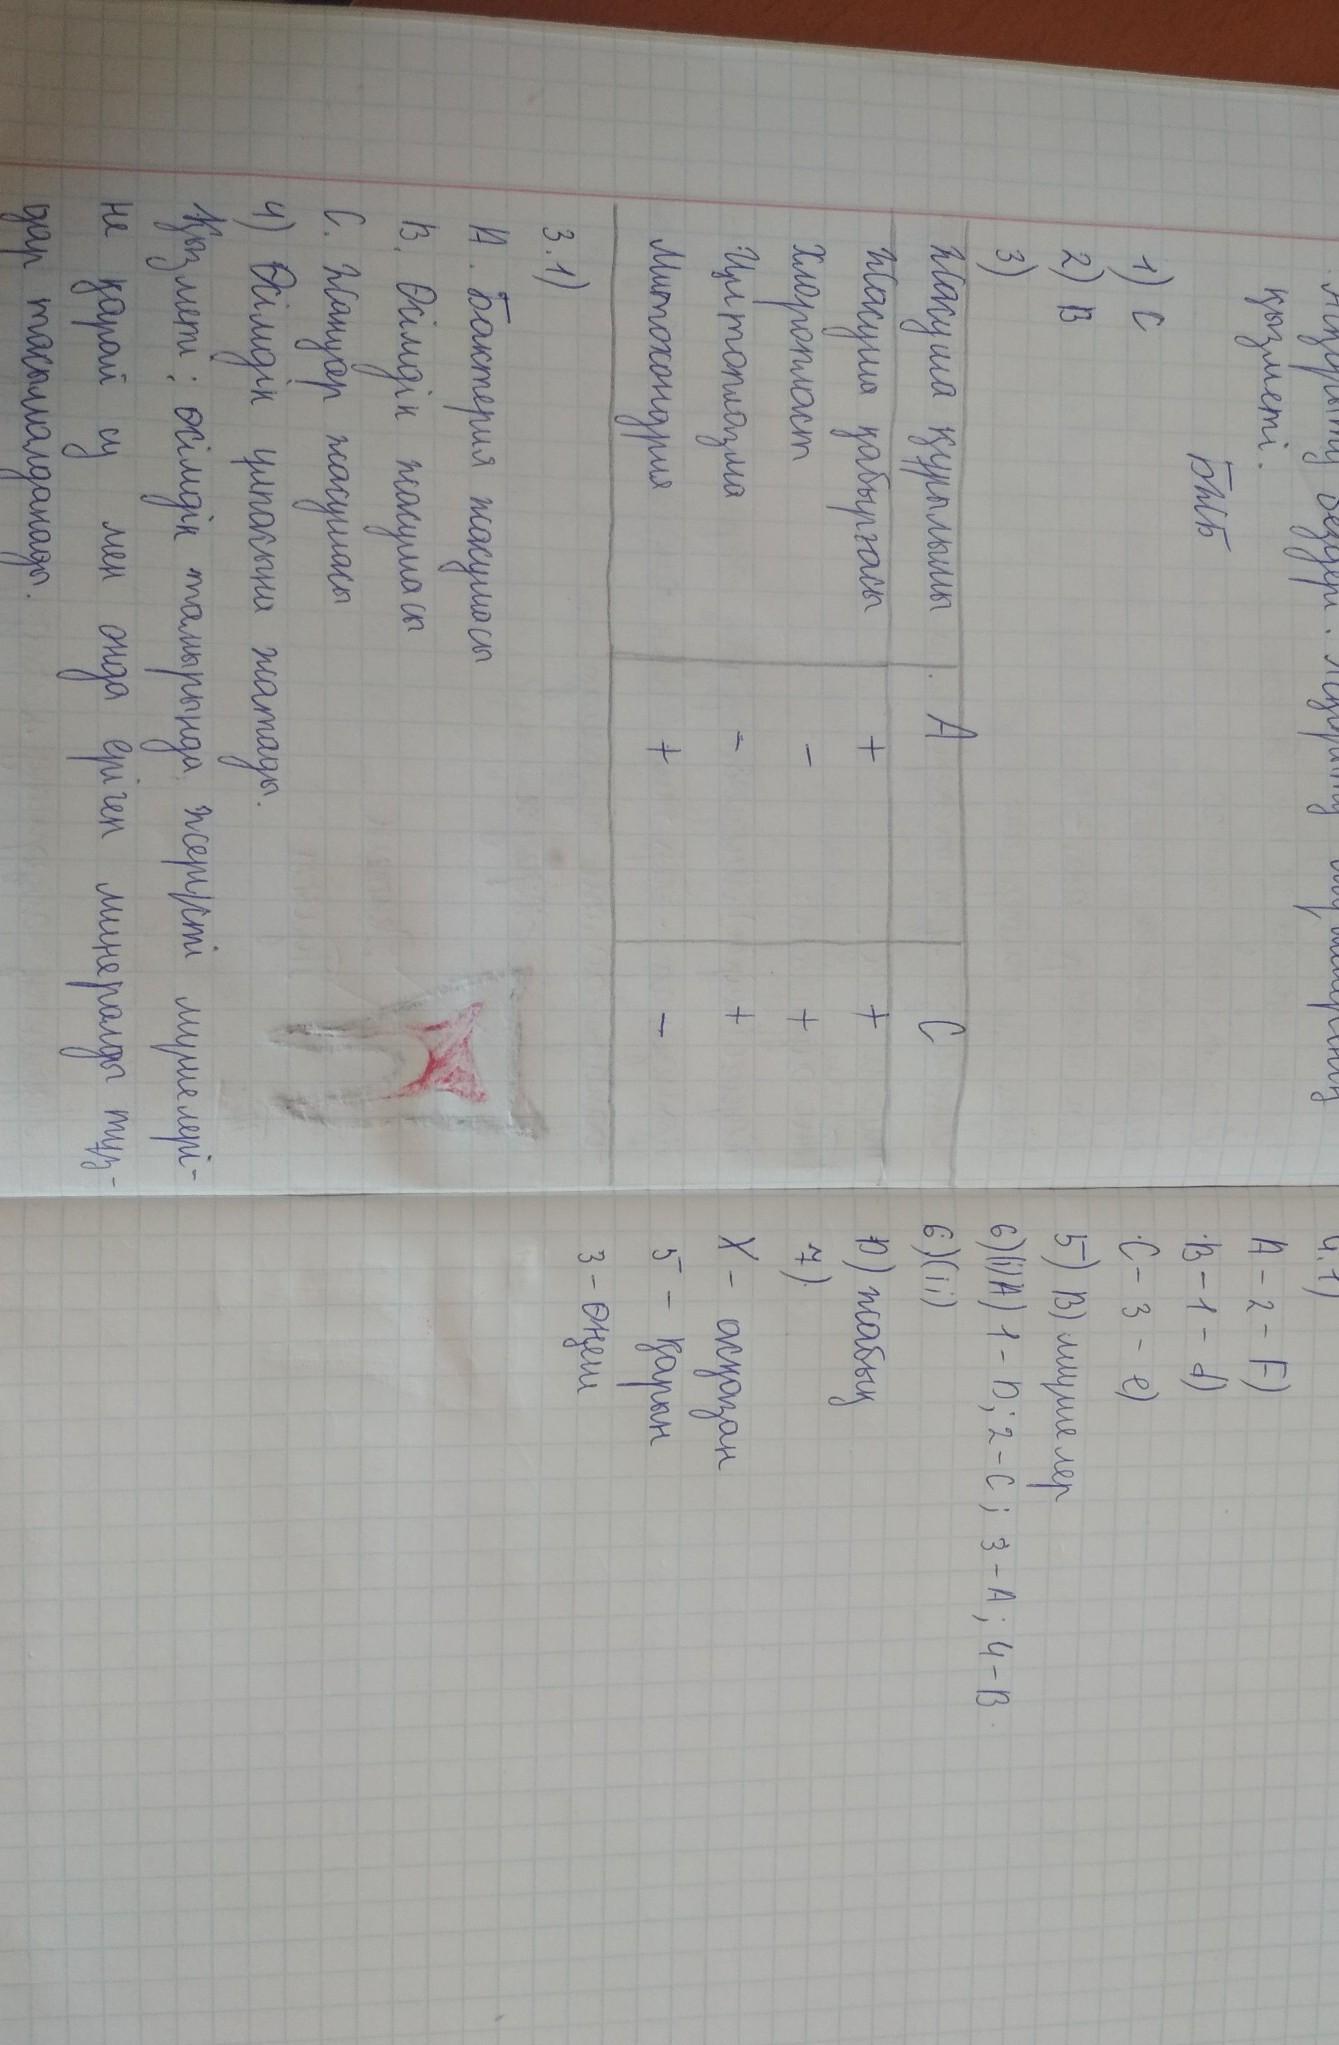 қызметі.
БЖБ
1) С
2) В
3)
Жасуша құрылымы А С
Жасуша қабырғасы + +
Хлоропласт - +
Цитоплазма - +
Митохондрия + -
3.1)
А. Бактерия жасушасы
В. Өсімдік жасушасы
С. Жануар жасушасы
4) Өсімдік ұлпасына жатады.
Қызметі: өсімдік тамырында жерүсті мүшелері-
не қарай су мен онда еріген минералды тұз-
дар тасымалданады.
4.1)
А - 2 - F)
В - 1 - d)
С - 3 - е)
5) В) мүшелер
6)(i) А) 1 - D; 2 - С; 3 - А; 4 - В
6)(ii)
D) жабық
7)
Х - асқазан
5 - қарын
3 - өңеш